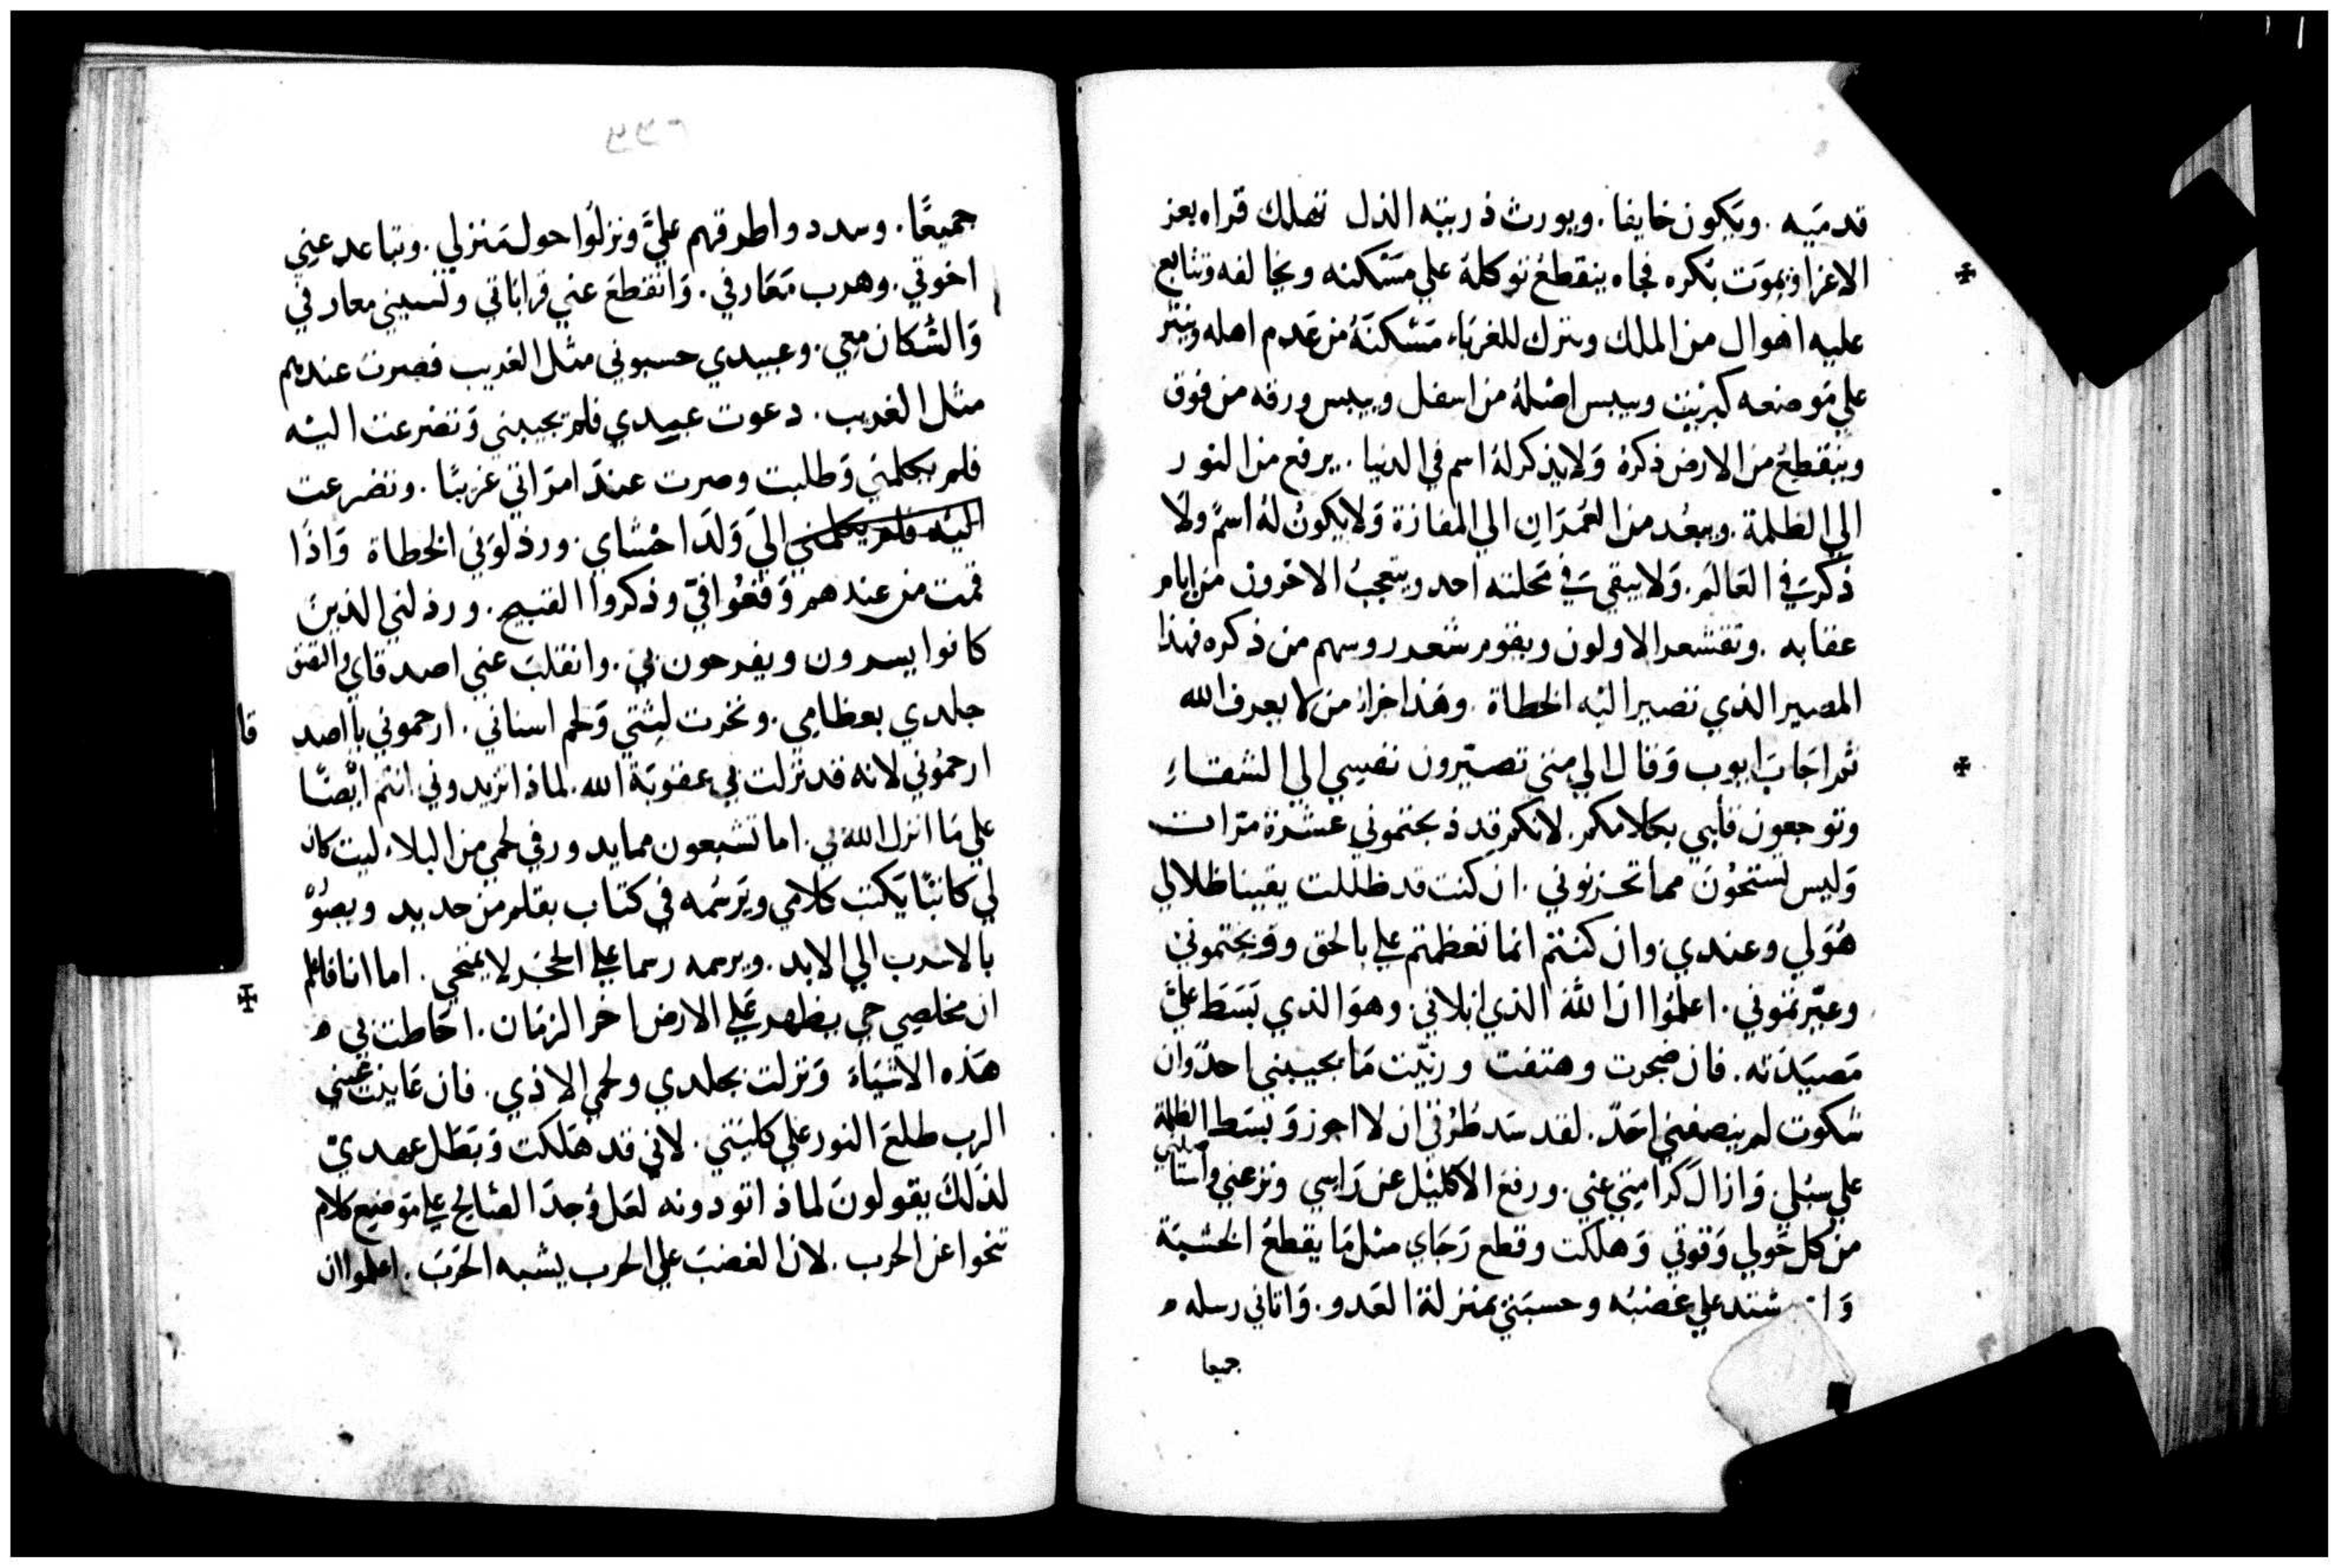 قدميه . ويكون خايفا . ويورث ذريته الذل تهلك قراه بعز
الاعزا ويموت بكره فجاه ينقطع توكله علي مسكنه ويخالفه وتتابع
عليه اهوال من الملك وينزل للغرباء مسكنه من عدم اهله وينثر
علي موضعه كبريت وييبس اصله من اسفل وييبس ورقه من فوق
وينقطع من الارض ذكره ولا يذكر له اسم في الدنيا . يرفع من النور
الي الظلمة . ويبعد من العمران الي المفازة ولا يكون له اسم ولا
ذكر في العالم . ولا يبقي في محلته احد ويتعجب الاخرون من ايام
عقابه . وتقشعر الاولون ويقوم شعر روسهم من ذكره فهذا
المصير الذي تصير اليه الخطاة . وهذا جزاء من لا يعرف الله
ثم اجاب ايوب وقال الي متي تصيرون نفسي الي الشقاء
وتوجعون قلبي بكلامكم . لانكم قد ذبحتموني عشرة مرات
وليس تستحون مما تحزنوني . ان كنت قد ظللت يقينا ظلالي
هو لي وعندي . وان كنتم انما تعظمتم علي بالحق ووبختموني
وعيرتموني . اعلموا ان الله الذي ابلاني . وهو الذي بسط علي
مصيدته . فان ضجرت وهتفت ورنيت ما يجيبني احد وان
شكوت لم ينصفني احد . لقد سد طرقي ان لا اجوز وبسط الظلمة
علي سبلي وازال كرامتي عني . ورفع الاكليل عن راسي ونزعني
من كل حولي وقوتي وهلكت وقطع رجاي مثل ما يقطع الخشبة
شتد علي غضبه وحسبني بمنزلة العدو . واتاني رسله
جميعا
جميعًا . وسددوا طرقهم علي ونزلوا حول منزلي . وتباعد عني
اخوتي . وهرب معارفي . وانقطع عني قراباتي ونسيني معارفي
والسكان معي . وعبيدي حسبوني مثل الغريب فصرت عندهم
مثل الغريب . دعوت عبيدي فلم يجيبني وتضرعت اليه
فلم يكلمني وطلبت وصرت عند امراتي غريبًا . وتضرعت
اليه فلم يكلمني الي ولد احشاي . ورذلوني الخطاة واذا
قمت من عندهم وقعوا في وذكروا القبيح . ورذلني الذين
كانوا يسرون ويفرحون بي . وانقلب عني اصدقاي والتصق
جلدي بعظامي . ونخرت لثتي ولحم اسناني . ارحموني يا اصدقا
ارحموني لانه قد نزلت بي عقوبة الله . لماذا تزيدوني انتم ايضًا
علي ما انزل الله بي . اما تشبعون مما يدور في لحمي من البلاء ليت كان
لي كاتبًا يكتب كلامي ويرسمه في كتاب بقلم من حديد
بالاسرب الي الابد . ويرسمه رسما علي الحجر لا يمنحي . اما انا فاعلم
ان مخلصي حي يظهر علي الارض اخر الزمان . احاطت بي
هذه الاشياء ونزلت بجلدي ولحمي الاذي . فان عاينت عيني
الرب طلع النور علي كليتي . لاني قد هلكت وبطل عددي
لذلك يقولون لماذا تودونه لعل وجدا لصالح علي موضع كلام
تنحوا عن الحرب . لان الغضب علي الحرب يشبه الحرب . اعلموا ان